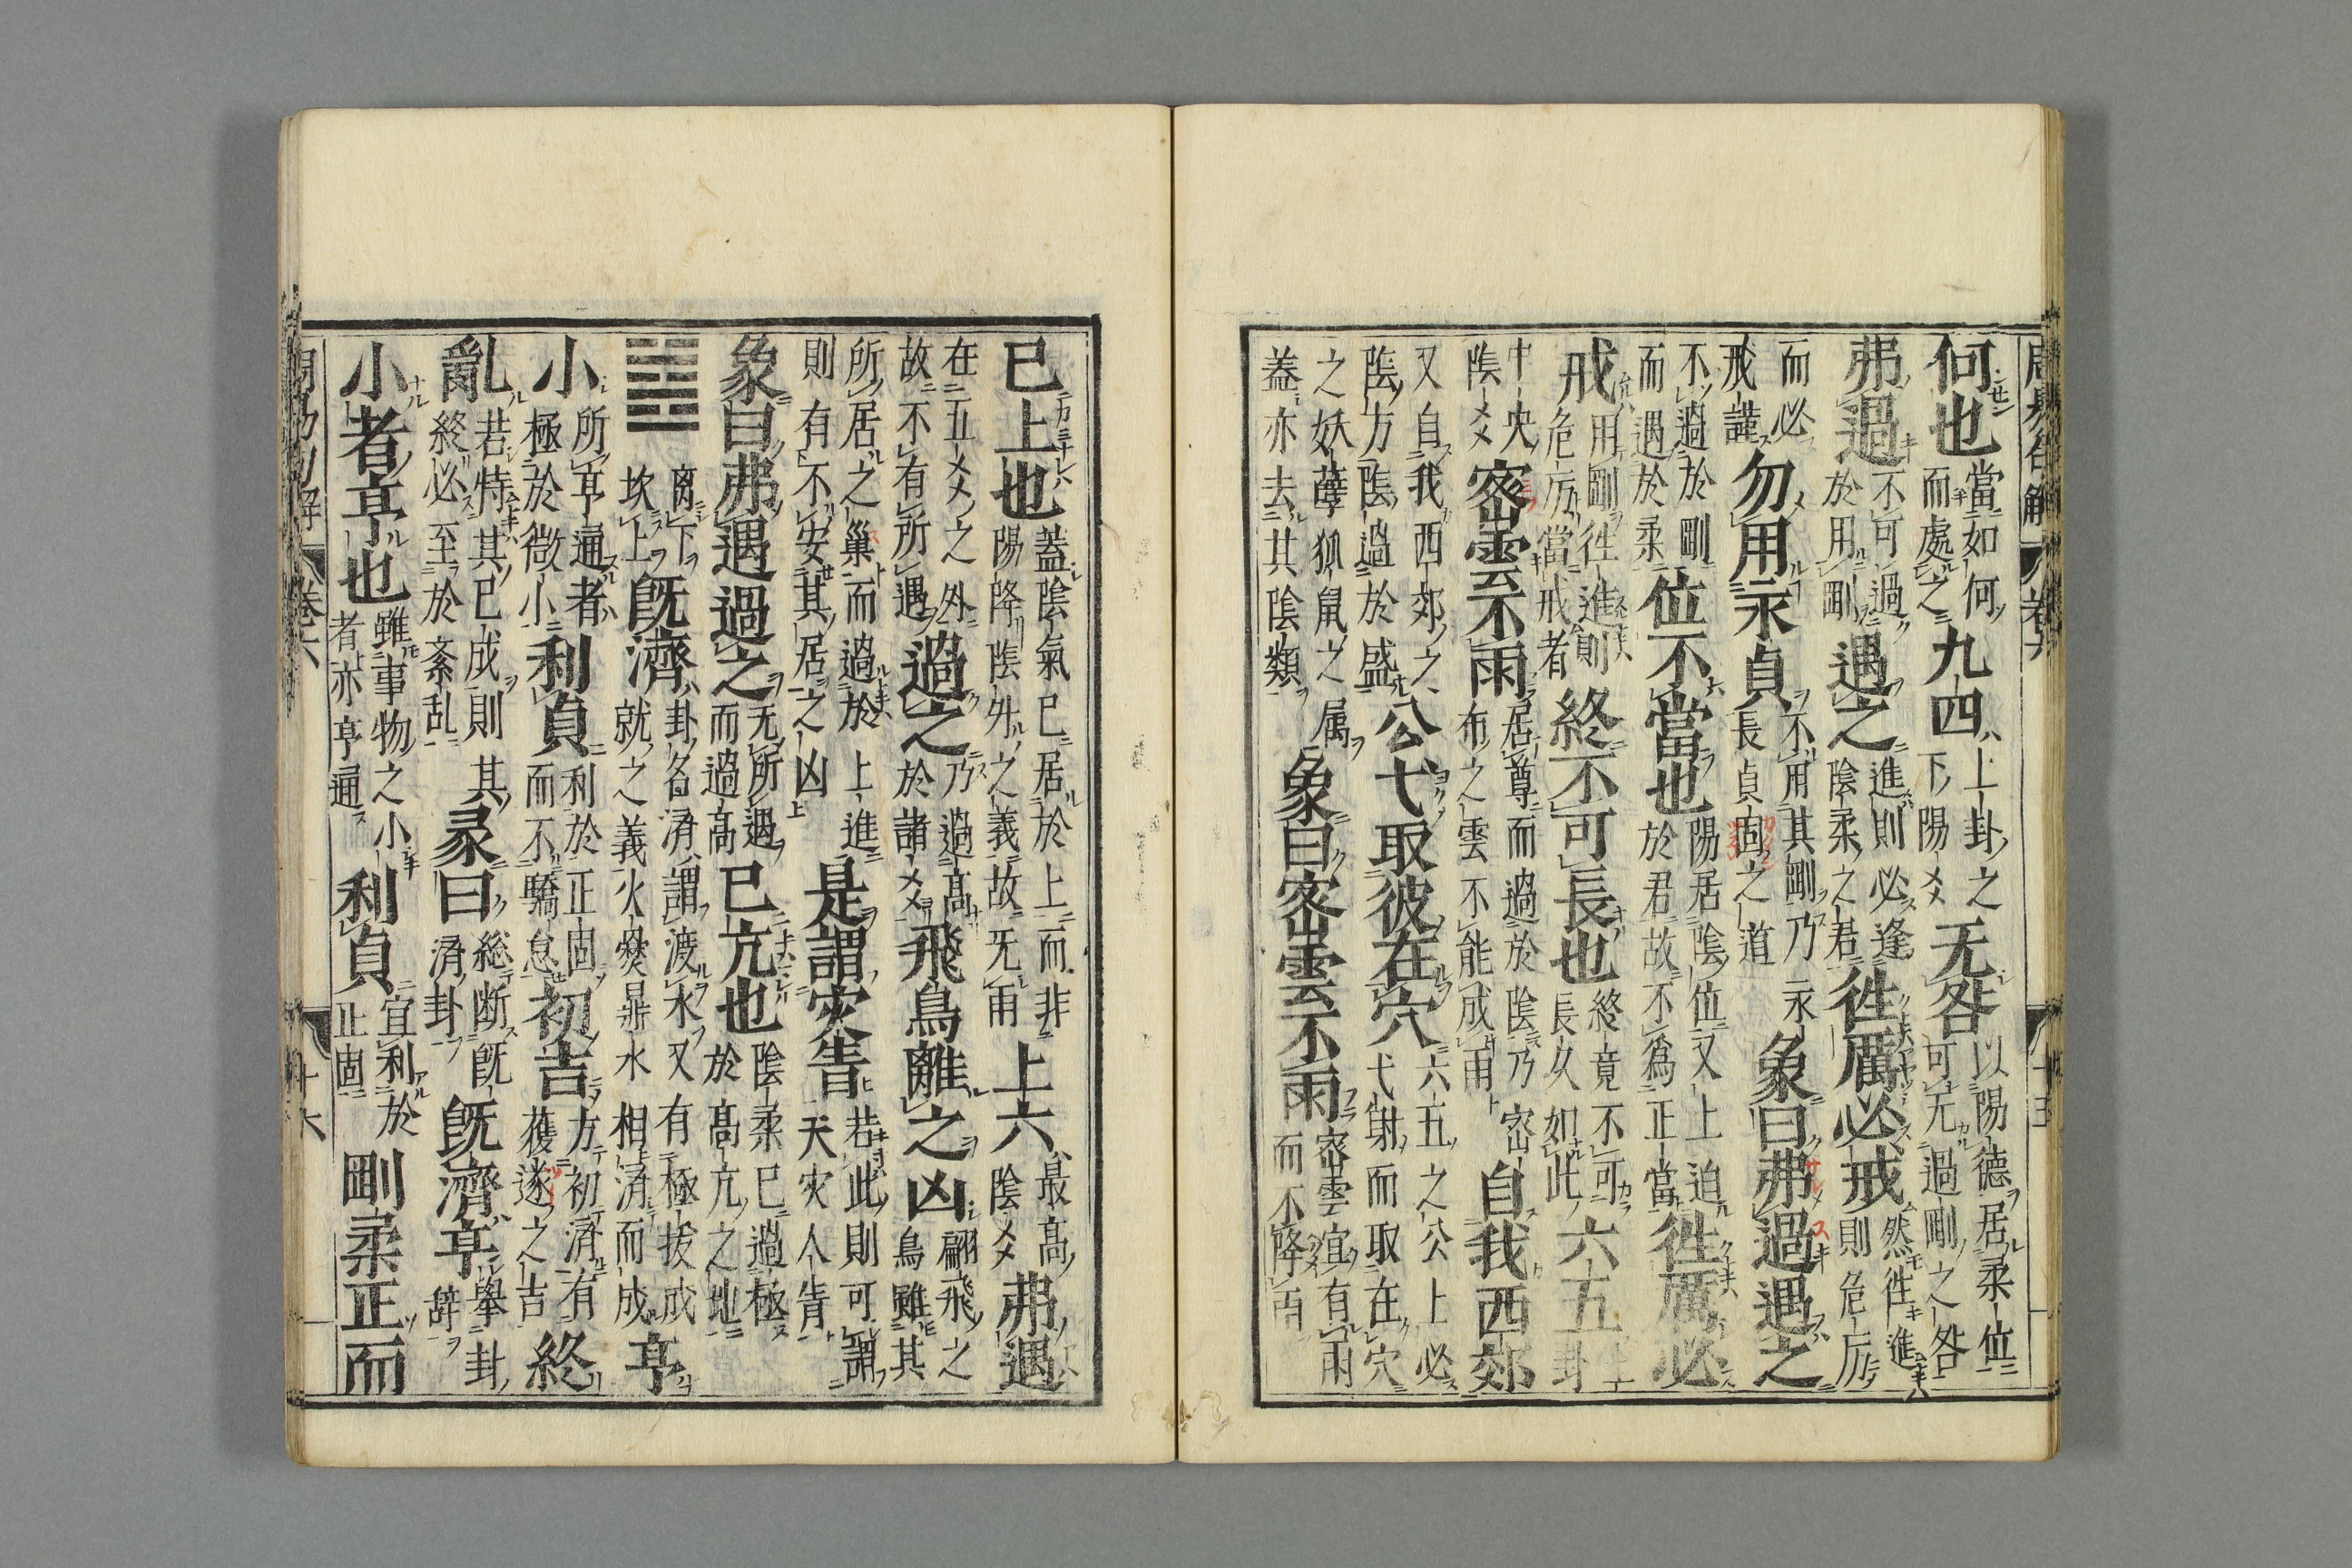 何也當如何而處之九四上卦之下陽爻无咎以陽德居柔位可无過剛之咎
弗過不可過於用剛遇之進則必逢陰柔之君往厲必戒然往進則危厉
而必戒謹勿用永貞不用其剛乃永長貞固之道象曰弗過遇之
不過於剛而遇於柔位不當也陽居陰位又上迫於君故不爲正當往厲必
戒用剛往進則危厉當戒者終不可長也終竟不可長久如此六五卦
中央陰爻密雲不雨居尊而過於陰乃密布之雲不能成雨自我西郊
又自我西郊之陰方陰過於盛公弋取彼在穴六五之公上必弋射而取在穴
之妖孽狐鼠之属蓋亦去其陰類象曰密雲不雨密雲宜有雨而不降雨
已上也蓋陰氣已居於上而非陽降陰外之義故旡雨上六最高陰爻弗遇
在五爻之外故不有所遇過之乃過高於諸爻飛鳥離之凶翩飛之鳥雖其
所居之巢而過於上進則有不安其居之凶是謂灾眚若此則可謂天灾人眚
象曰弗遇過之无所遇而過高已亢也陰柔已過極於高亢之地
䷾離下坎上既濟卦名済謂渡水又有極抜成就之義火爨鼎水相済而成亨
小所亨通者極於微小利貞利於正固而不驕怠初吉方初済有獲遂之吉終
亂若特其已成則其終必至於紊乱彖曰総断済卦既濟亨舉卦辞
小者亨也雖事物之小者亦亨通利貞宜利於正固剛柔正而